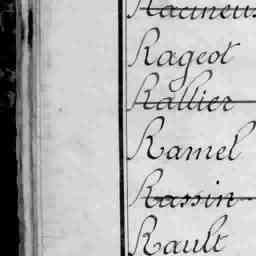 Racineus
Rageot
Rallier
Ramel
Rassin
Rault